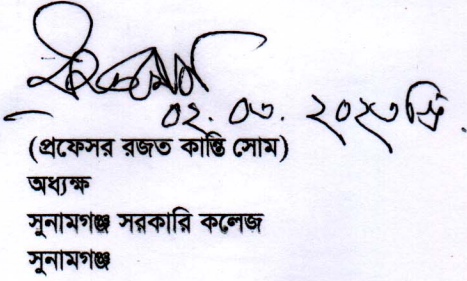 ০২.০৩.২০২৩ খ্রি.
(প্রফেসর রজত কান্তি সোম)
অধ্যক্ষ
সুনামগঞ্জ সরকারি কলেজ
সুনামগঞ্জ